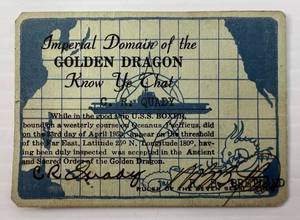 Imperial Domain of the
GOLDEN DRAGON
Know Ye That
C. R. QUADY
While in the good ship U.S.S. BOXER,
bound on a westerly course in Oceanus Pacificus, did
on the 23rd day of April appear on the threshold
of the Far East, Latitude N, Longitude 180°, and
having been duly inspected was accepted in the Ancient
and Sacred Order of the Golden Dragon.
C R Quady
RULER OF THE SEVEN